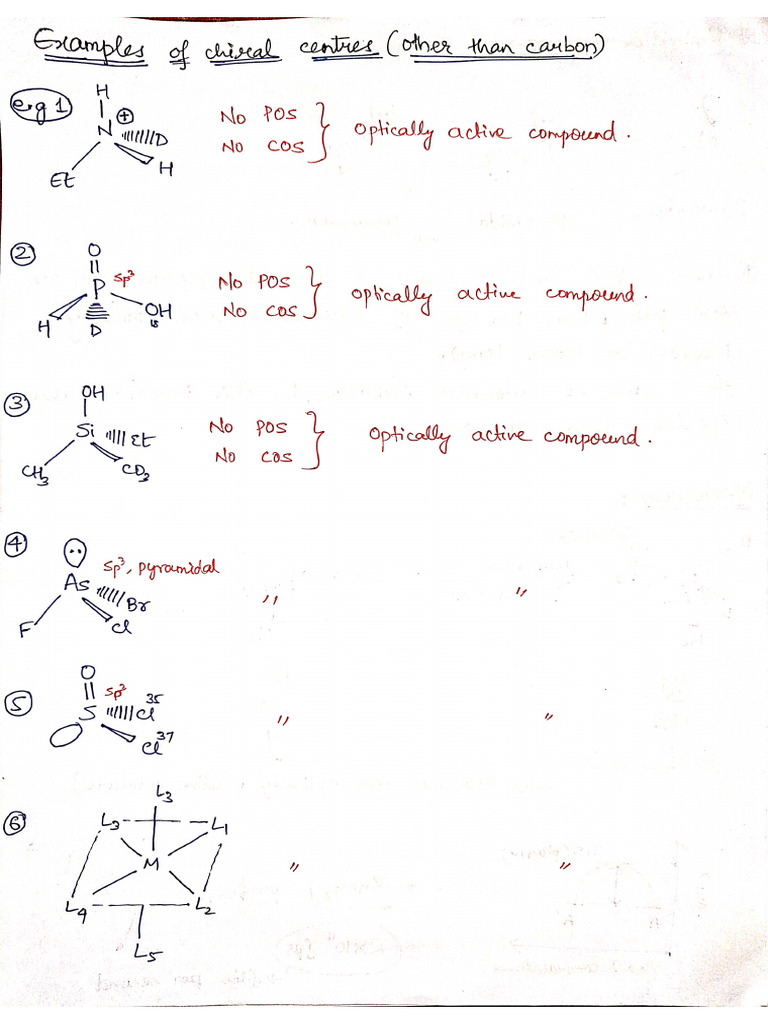 Examples of chiral centres (other than carbon)
e.g 1
H
N ⊕
D
H
Et
No POS
No COS
Optically active compound.
2
O
P sp³
H
D
OH
18
No POS
No COS
optically active compound.
3
OH
Si
Et
CH3
CD3
No POS
No COS
Optically active compound.
4
As
sp³, pyramidal
F
Br
Cl
"
"
5
O
sp³
S
Cl35
Cl37
"
"
6
L3
L3
L1
M
L4
L2
L5
"
"